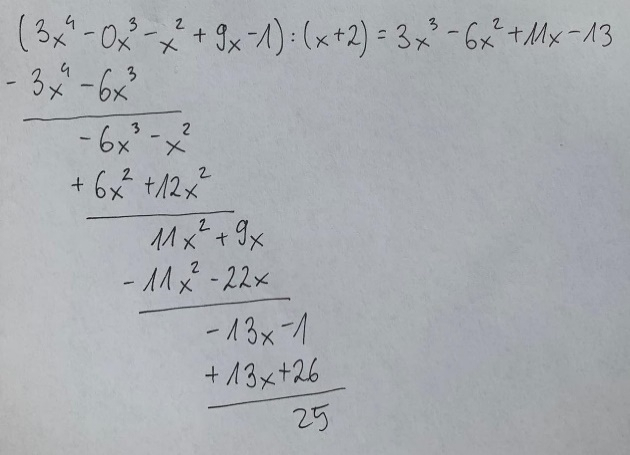 (3x⁴ - 0x³ - x² + 9x - 1) : (x+2) = 3x³ - 6x² + 11x - 13
- 3x⁴ - 6x³
- 6x³ - x²
+ 6x² + 12x²
11x² + 9x
- 11x² - 22x
- 13x - 1
+ 13x + 26
25